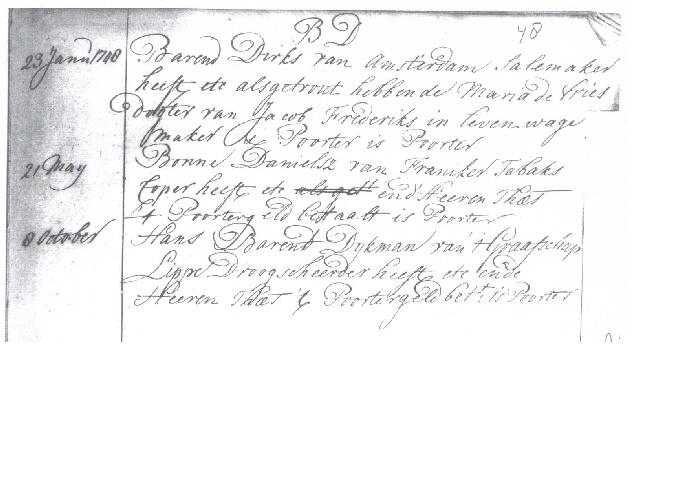 B D
48
23 Janu 1748 Barend Dirks van Amsterdam Salemaker
heeft etc alsgetrout hebbende Maria de Vries
dogter van Jacob Frederiks in leven wage
maker & Poorter is Poorter
21 May Bonne Danielsz van Franiker Tabaks
Coper heeft etc als get end Heeren Thes
't Poortergeld bettaalt is Poorter
8 October Hans Barent Dykman van 't Graafschap
Lippe Droogscheerder heeft etc ende
Heeren Thes 't Poortergeld bett is Poorter